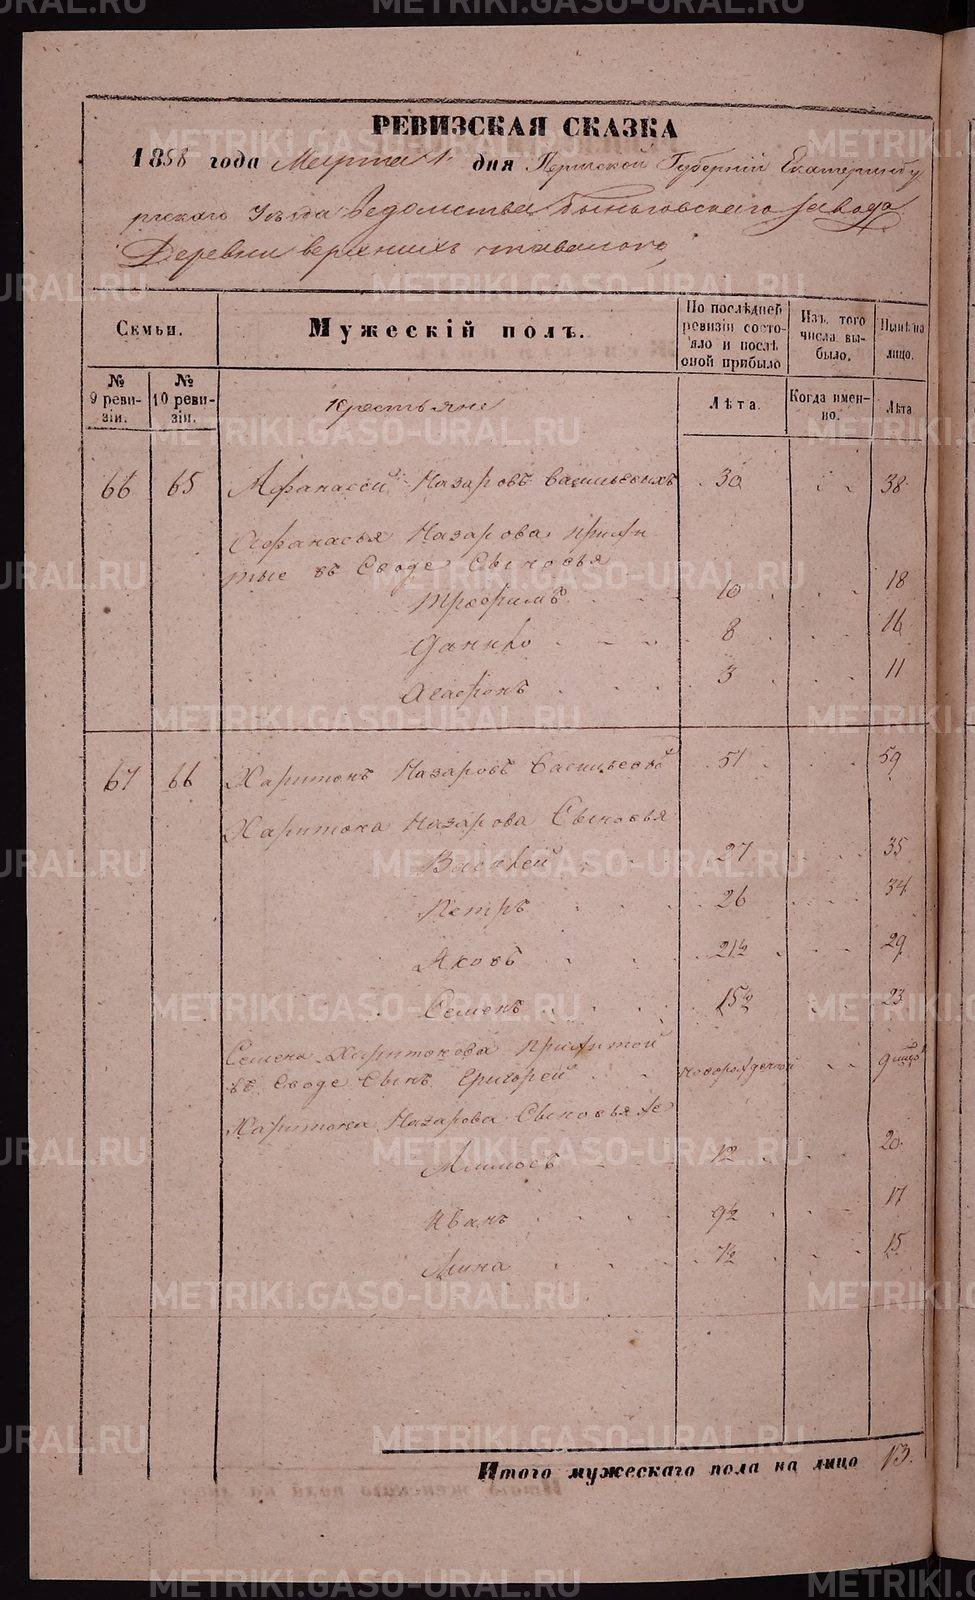 РЕВИЗСКАЯ СКАЗКА
1858 года Марта 1. дня Пермской Губерніи Екатеринбу
ргскаго Уѣзда Ведомства Быньговскаго завода
Деревни верхнихъ тавологъ
Семьи.
Мужескій полъ.
По послѣдней ревизіи состояло и послѣ оной прибыло
Изъ того числа выбыло.
Нынѣ на лицо.
№ 9 ревизіи.
№ 10 ревизіи.
Крестьяне
Лѣта.
Когда именно.
Лѣта
66 65 Афанасей Назаровъ Васильевыхъ 30 38
Афанасья Назарова прижи
тые въ Сводѣ Сыновья
Трофимъ 10 18
Данило 8 16
Агафонъ 3 11
67 66 Харитонъ Назаровъ Васильевой 51 59
Харитона Назарова Сыновья
Василей 27 35
Петръ 26 34
Яковъ 21½ 29
Семенъ 15½ 23
Семена Харитонова прижитой
въ Сводѣ Сынъ Григорей новорожденной 9
Харитона Назарова Сыновья же
12 20
Иванъ 9½ 17
Мина 7½ 15
Итого мужескаго пола на лицо 13.
METRIKI.GASO-URAL.RU